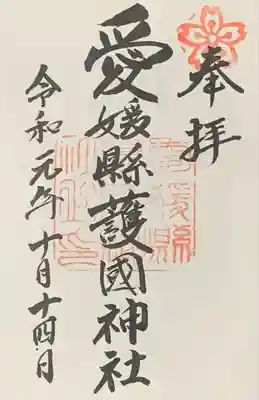 奉拝
愛媛縣護國神社
令和元年十月十四日